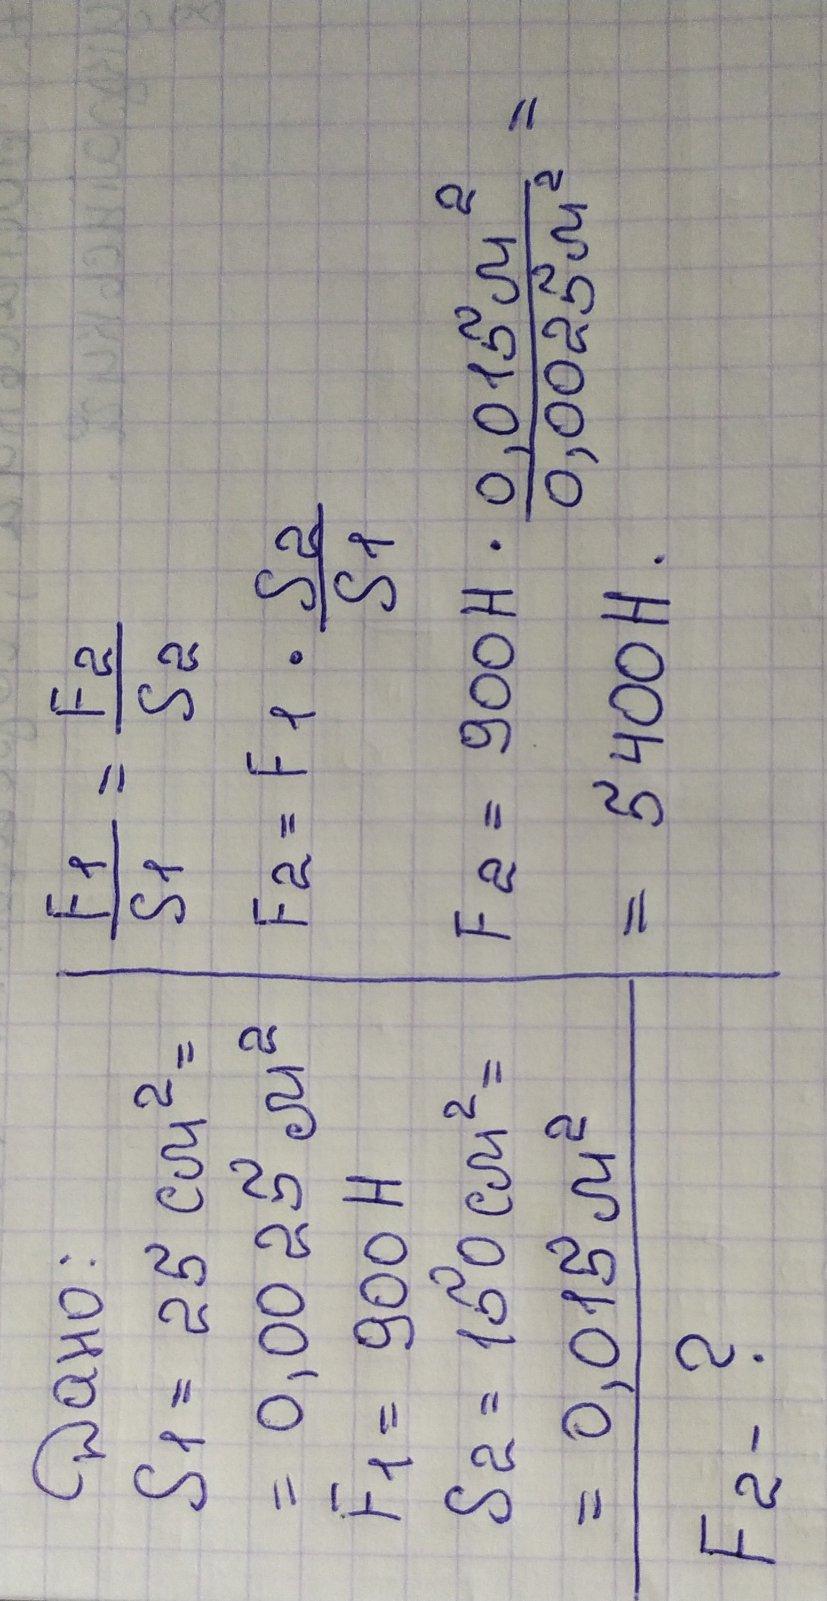 Дано:
S1 = 25 см² =
= 0,0025 м²
F1 = 900 Н
S2 = 150 см² =
= 0,015 м²
F2 - ?
F1/S1 = F2/S2
F2 = F1 · S2/S1
F2 = 900 Н · 0,015 м²/0,0025 м² =
= 5400 Н.